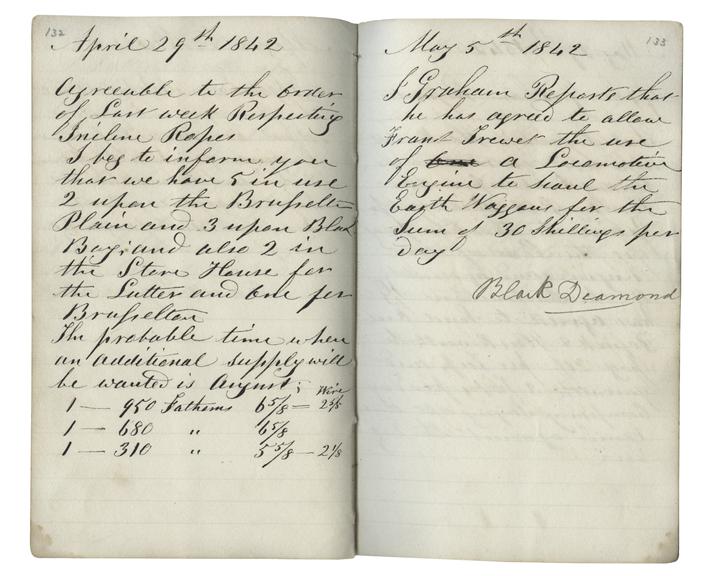 132
April 29th 1842
Agreeable to the order
of Last week Respecting
Incline Ropes
I beg to inform you
that we have 5 in use
2 upon the Brusselton
Plain and 3 upon Black
Boy; and also 2 in
the Store House for
the Latter and one for
Brusselton
The probable time when
an additional supply will
be wanted is August;
Wire
1 — 950 Fathoms 6 5/8 = 2 5/8
1 — 680 " 6 5/8
1 — 310 " 5 5/8 — 2 1/8
133
May 5th 1842
J Graham Reports that
he has agreed to allow
the use
of one a Locomotive
Engine to haul the
Earth Waggons for the
Sum of 30 Shillings per
day
Black Deamond